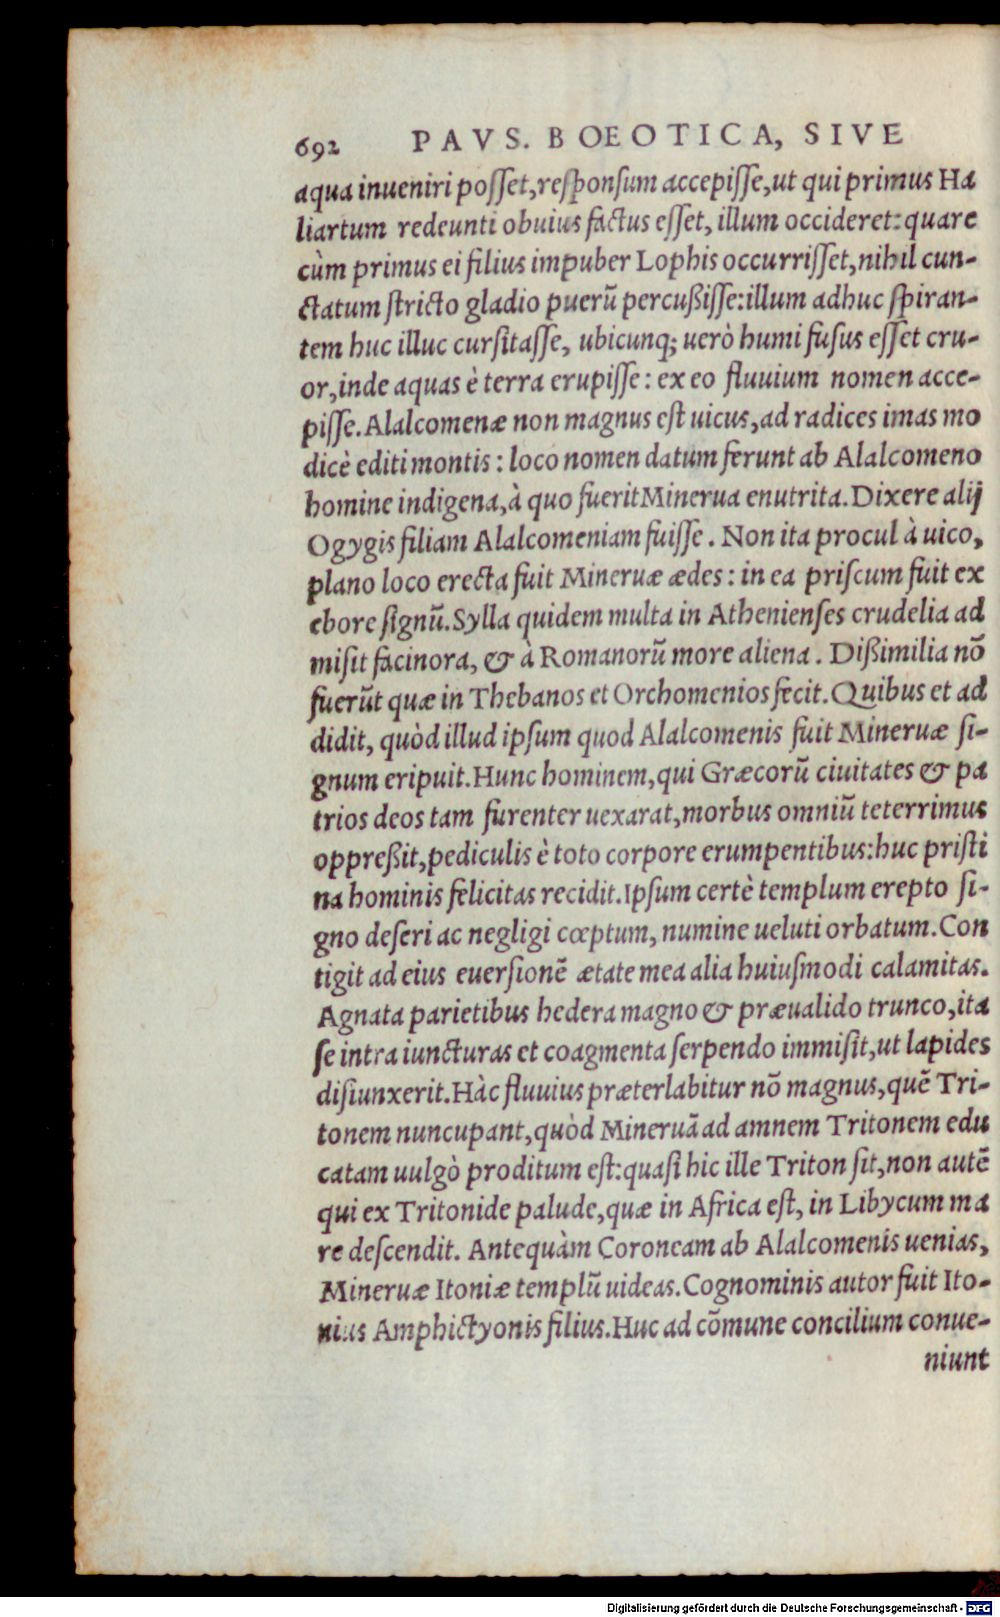 692 PAVS. BOEOTICA, SIVE
aqua inueniri poſſet, reſponſum accepiſſe, ut qui primus Ha
liartum redeunti obuius factus eſſet, illum occideret: quare
cùm primus ei filius impuber Lophis occurriſſet, nihil cun-
ctatum ſtricto gladio puerū percußiſſe: illum adhuc ſpiran-
tem huc illuc curſitaſſe, ubicunq; uerò humi fuſus eſſet cru-
or, inde aquas è terra erupiſſe: ex eo fluuium nomen acce-
piſſe. Alalcomenæ non magnus eſt uicus, ad radices imas mo
dicè editi montis: loco nomen datum ferunt ab Alalcomeno
homine indigena, à quo fuerit Minerua enutrita. Dixere alij
Ogygis filiam Alalcomeniam fuiſſe. Non ita procul à uico,
plano loco erecta fuit Mineruæ ædes: in ea priſcum fuit ex
ebore ſignū. Sylla quidem multa in Athenienſes crudelia ad
miſit facinora, & à Romanorū more aliena. Dißimilia nō
fuerūt quæ in Thebanos et Orchomenios fecit. Quibus et ad
didit, quòd illud ipſum quod Alalcomenis fuit Mineruæ ſi-
gnum eripuit. Hunc hominem, qui Græcorū ciuitates & pa
trios deos tam furenter uexarat, morbus omniū teterrimus
oppreßit, pediculis è toto corpore erumpentibus: huc priſti
na hominis felicitas recidit. Ipſum certè templum erepto ſi-
gno deſeri ac negligi cœptum, numine ueluti orbatum. Con
tigit ad eius euerſionē ætate mea alia huiuſmodi calamitas.
Agnata parietibus hedera magno & præualido trunco, ita
ſe intra iuncturas et coagmenta ſerpendo immiſit, ut lapides
diſiunxerit. Hàc fluuius præterlabitur nō magnus, quē Tri-
tonem nuncupant, quòd Mineruā ad amnem Tritonem edu
catam uulgò proditum eſt: quaſi hic ille Triton ſit, non autē
qui ex Tritonide palude, quæ in Africa eſt, in Libycum ma
re deſcendit. Antequàm Coroneam ab Alalcomenis uenias,
Mineruæ Itoniæ templū uideas. Cognominis autor fuit Ito-
nius Amphictyonis filius. Huc ad cōmune concilium conue-
niunt
Digitalisierung gefördert durch die Deutsche Forschungsgemeinschaft - DFG